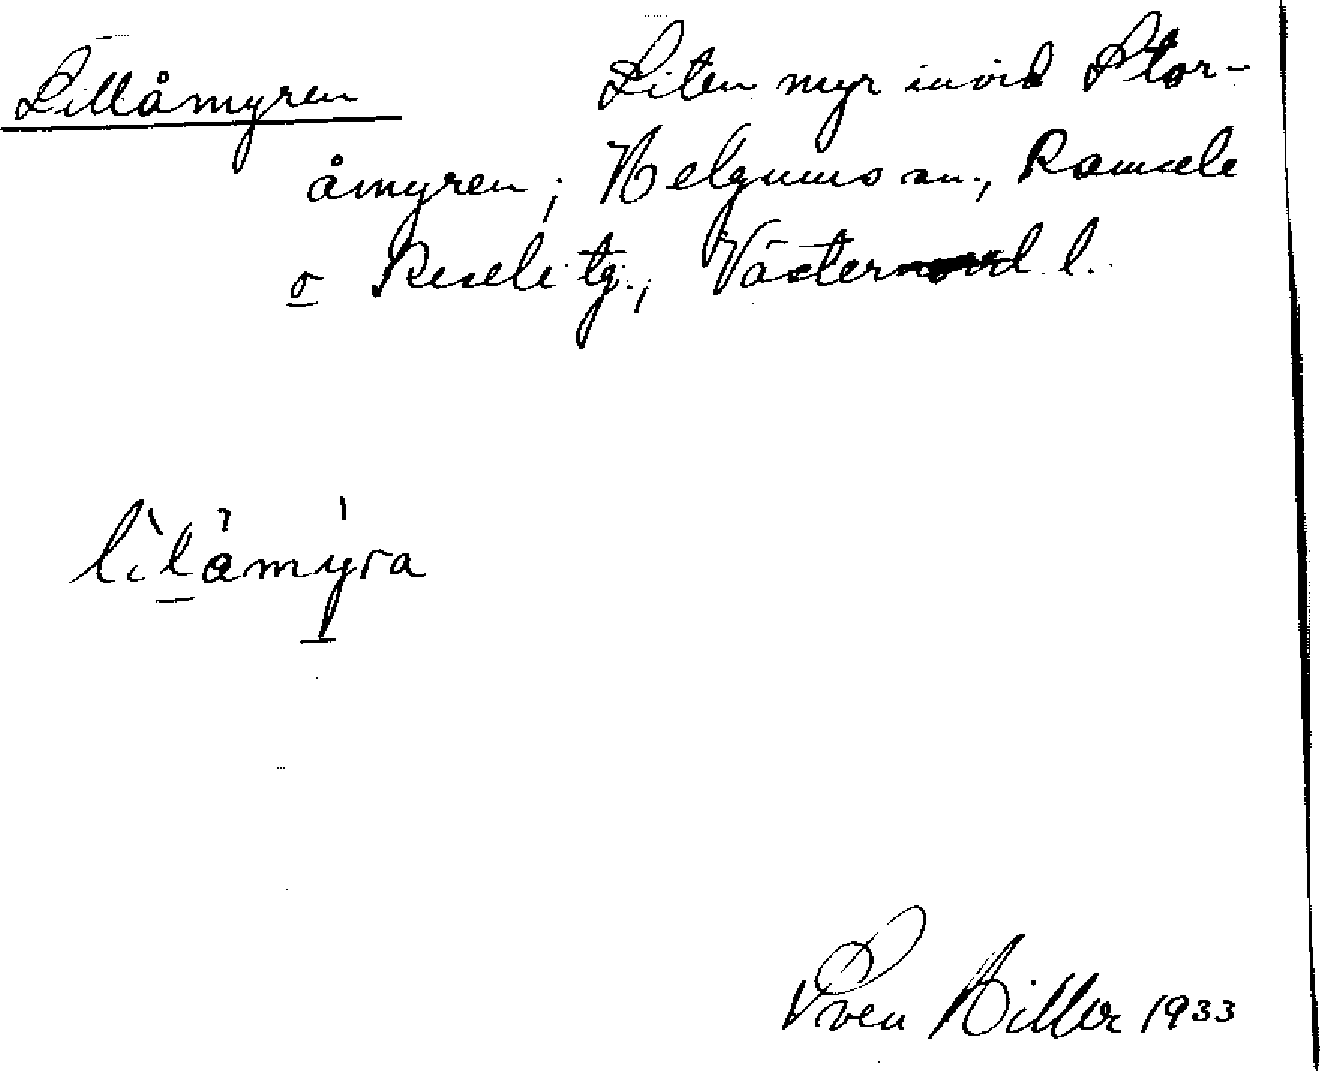 Lillåmyren Liten myr invid Stor-
åmyren; Helgums sn., Ramsele
o Resele tg., Västernorrl. l.
lìlåmyra
Sven Hiller 1933